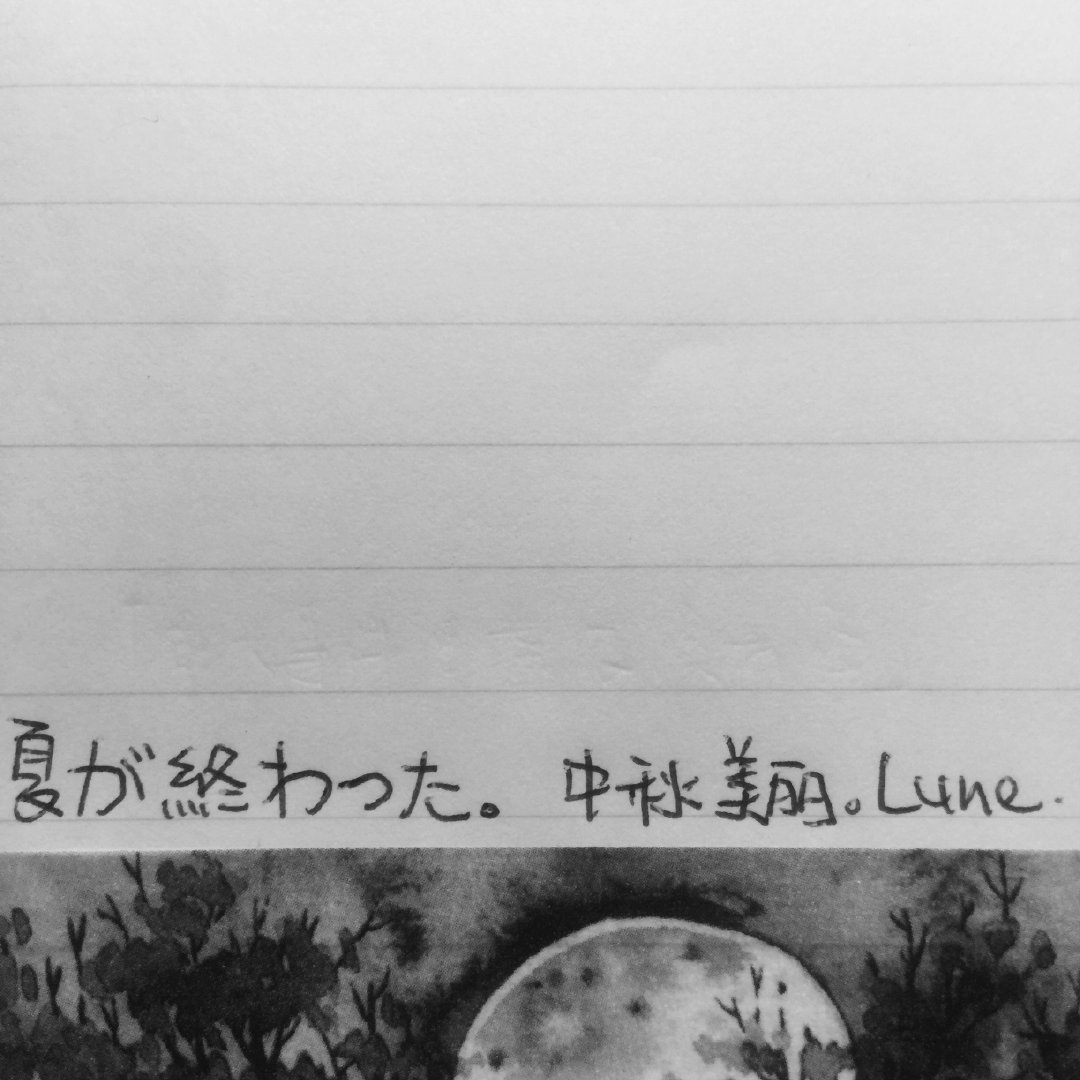 夏が終わった。 中秋美丽。Lune.